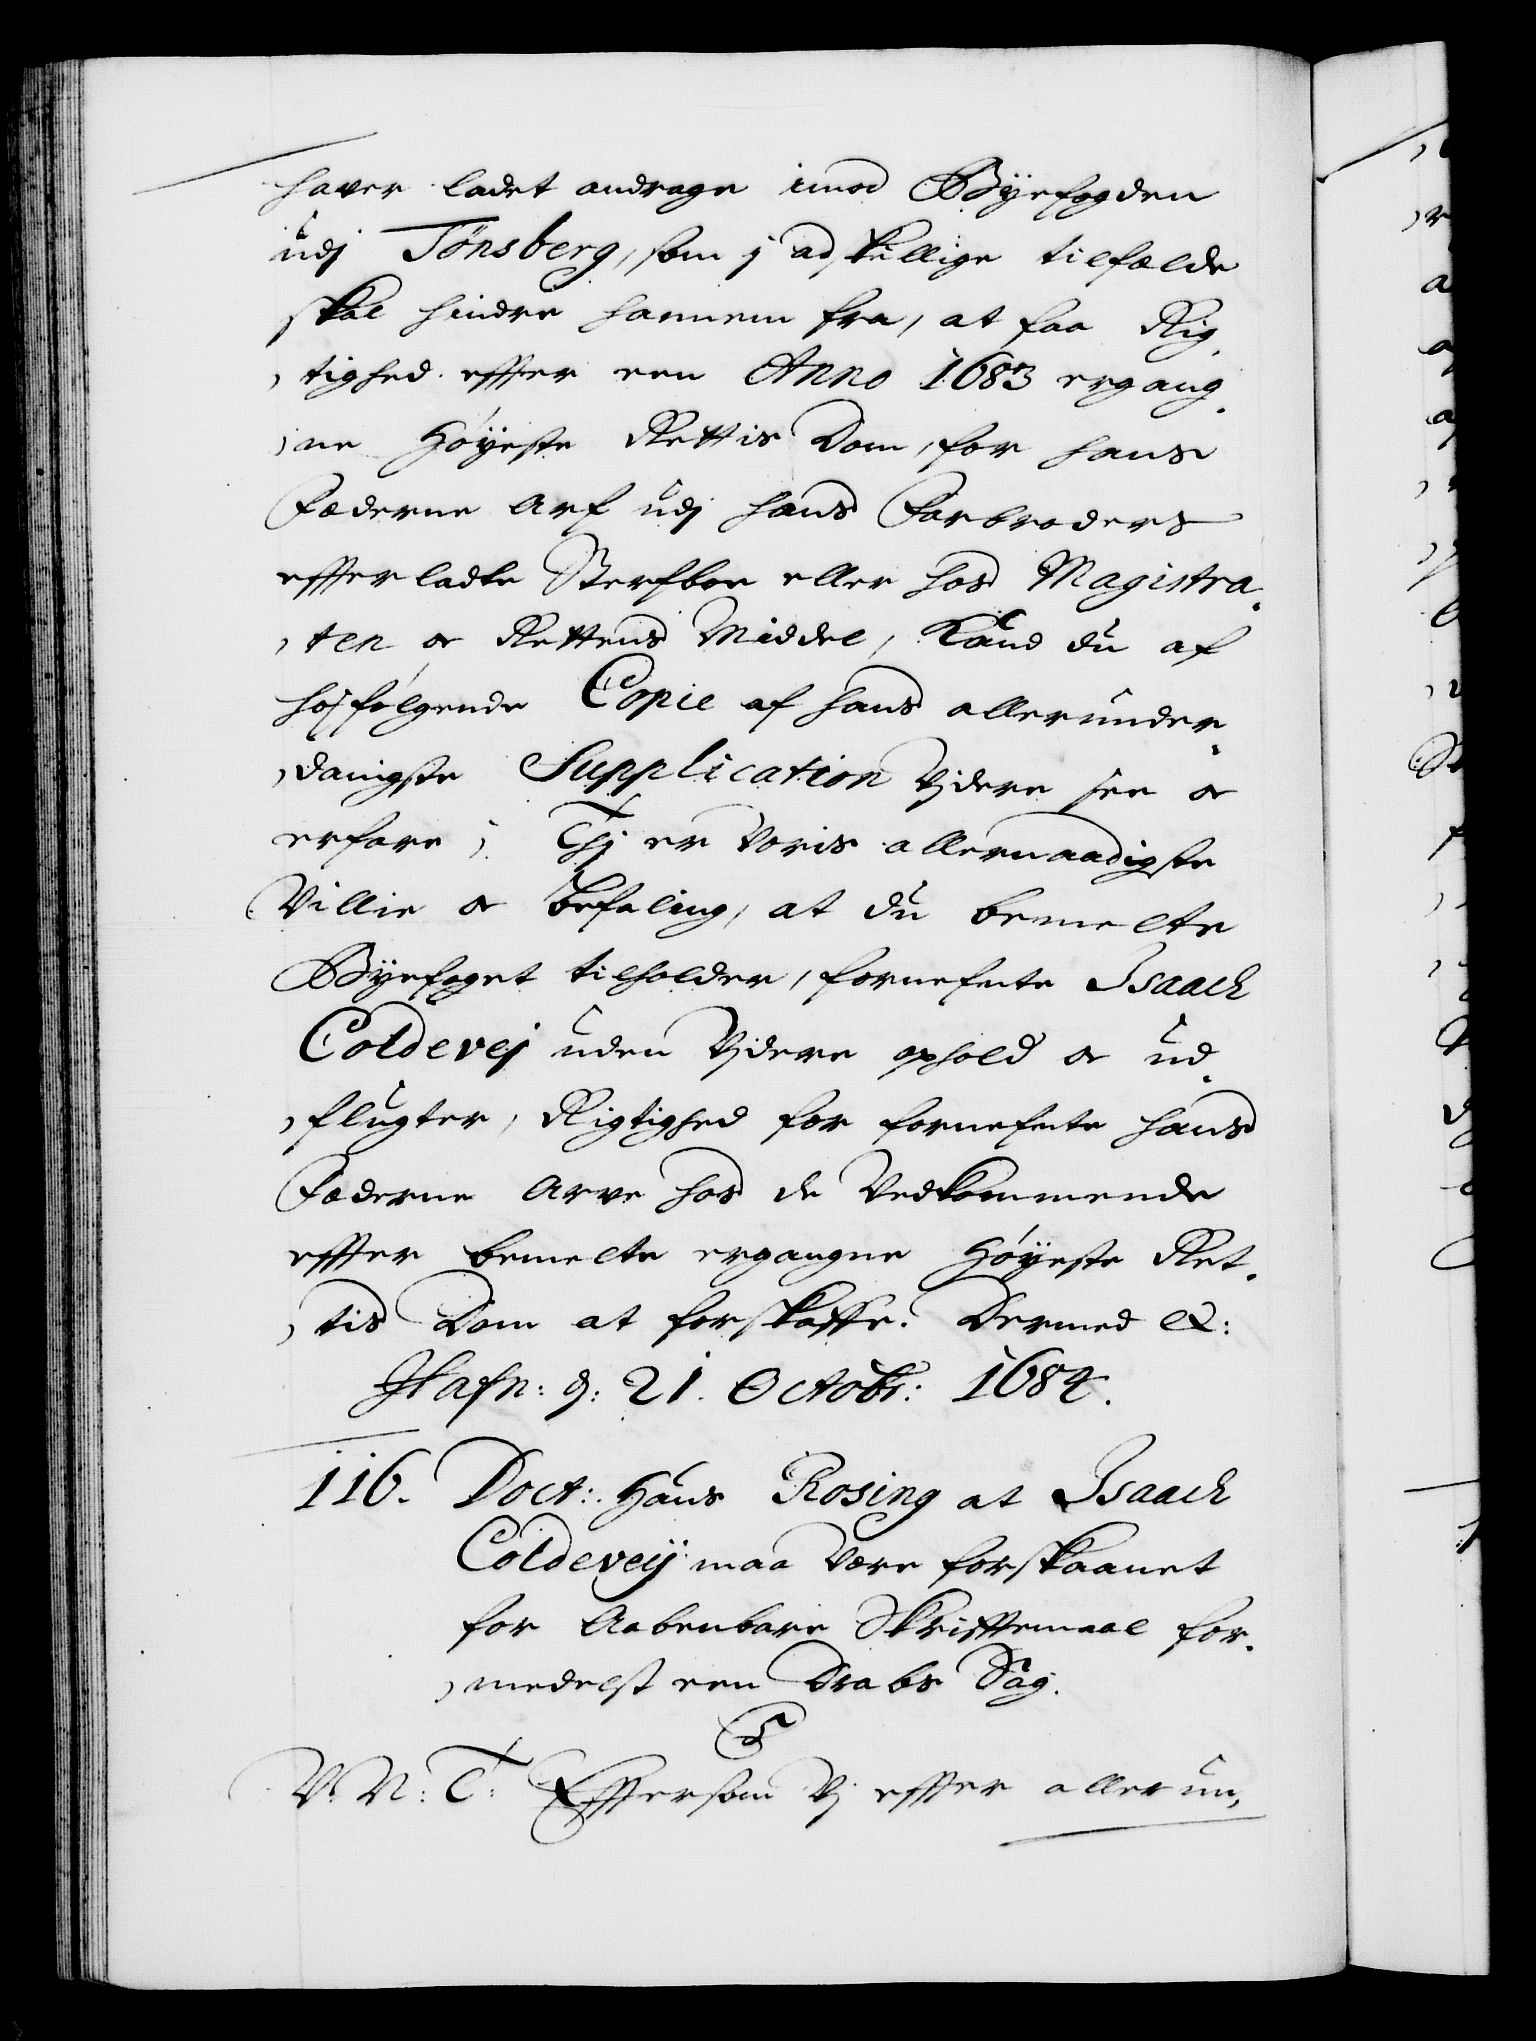 hafver ladet andrage imod Byefogden
udj Tönsberg, som j adskillige tilfælde
skal hindre hannem fra, at faa Rig,
,tighed effter een Anno 1683 ergang,
,ne Høyeste Rettis Dom, for hans
Fæderne Arf udj hans Farbroders
effterladte Sterfboe eller hos Magistra,
,ten oc Rettens Middel, Kand du af
hosfølgende Copie af hans allerunder,
,danigste Supplication vjdere see oc
erfare; Thj er Voris allernaadigste
Villie oc befaling, at du bemelte
Byefoget tilholder, fornefnte Isaach
Coldevej uden Vjdere ophold oc ud,
,flugter, Rigtighed for fornefnte hans
Fæderne Arve hos de Vedkommende
effter bemelte ergangne Høyeste Ret,
,tis Dom at forskaffe. Dermed &:
Hafn: d: 21. Octobr: 1684.
116. Doct: Hans Rosing at Isaach
Coldeveÿ maa være forskaanet
for Aabenbare Skrifftemaal for,
,medelst een Drabs Sag.
C5
V. N: T: Effersom Vj effter allerun,